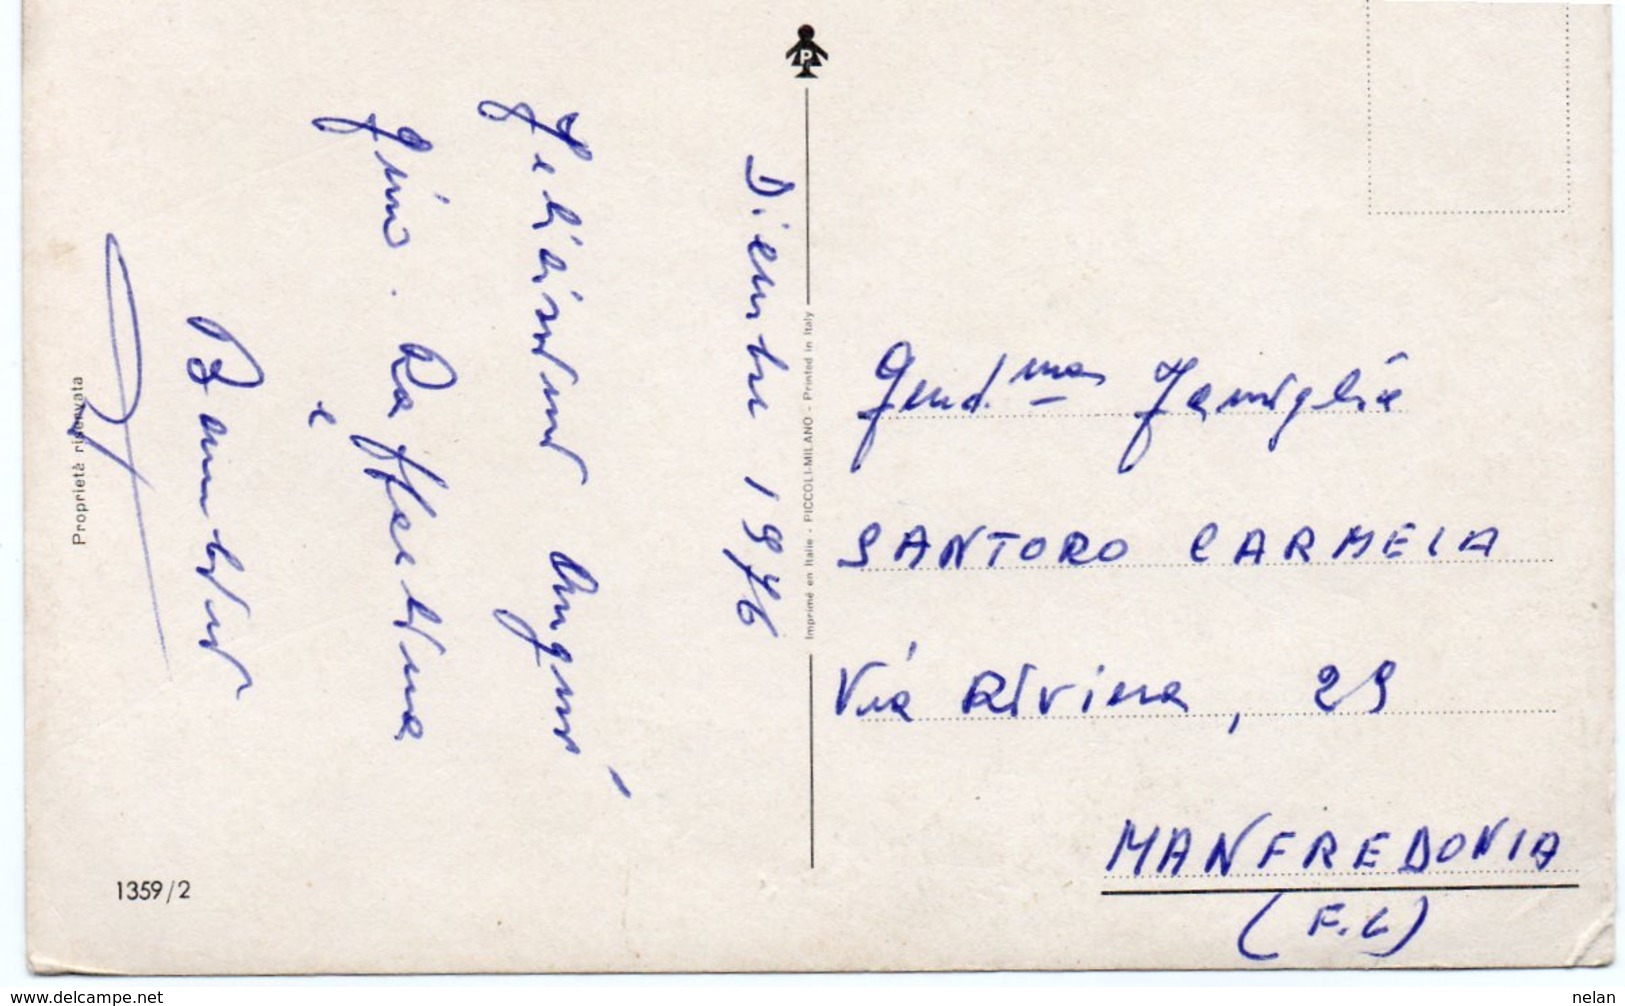 Dicembre 1976
Felicissimi Auguri
Gino. Raffaelina
e
Bambini
P
Imprimé en Italie - PICCOLI-MILANO - Printed in Italy
Proprietà riservata
1359/2
Gent.ma Famiglia
SANTORO CARMELA
Via Riviera, 29
MANFREDONIA
(F.G)
www.delcampe.net
nelan